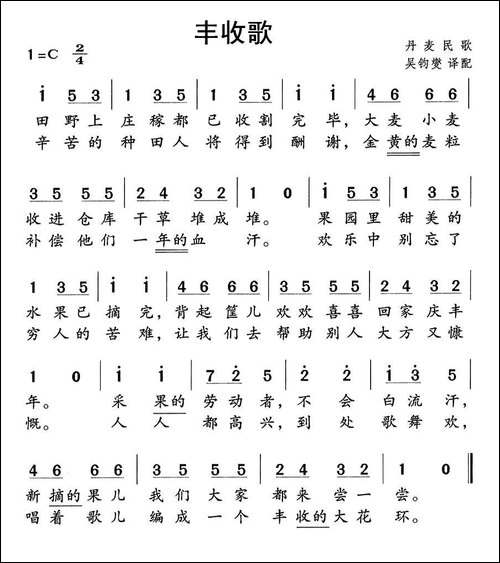 丰收歌
1=C 2/4
丹麦民歌
吴钧燮 译配
i 53 | 1 35 | i 53 | 1 35 | i i | 46 66
田野上 庄稼都 已收割 完毕,大麦 小麦
辛苦的 种田人 将得到 酬谢,金黄的麦粒
35 55 | 24 32 | 1 0 | i 53 | 1 35
收进仓库 干草堆成 堆。 果园里 甜美的
补偿他们 一年的血 汗。 欢乐中 别忘了
1 35 | i i | 46 66 | 35 55 | 24 32
水果已 摘完,背起筐儿 欢欢喜喜 回家庆丰
穷人的 苦难,让我们去 帮助别人 大方又慷
1 0 | i i | 72 5 | 2 2 | i3 5
年。 采果的 劳动者,不会 白流汗,
慨。 人人 都高兴,到处 歌舞欢,
46 66 | 35 55 | 24 32 | 1 0
新摘的果儿 我们大家 都来尝一 尝。
唱着歌儿 编成一个 丰收的大花 环。